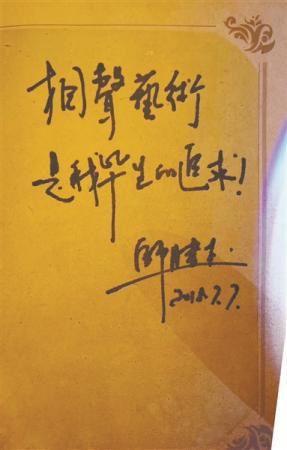 相聲藝術
是我毕生的追求!
師胜杰
2018.7.7.